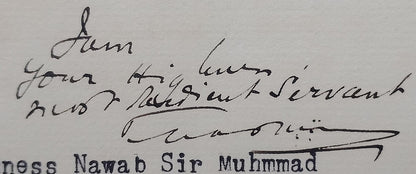 I am
Your Highness
most Obedient Servant
ness Nawab Sir Muhmmad